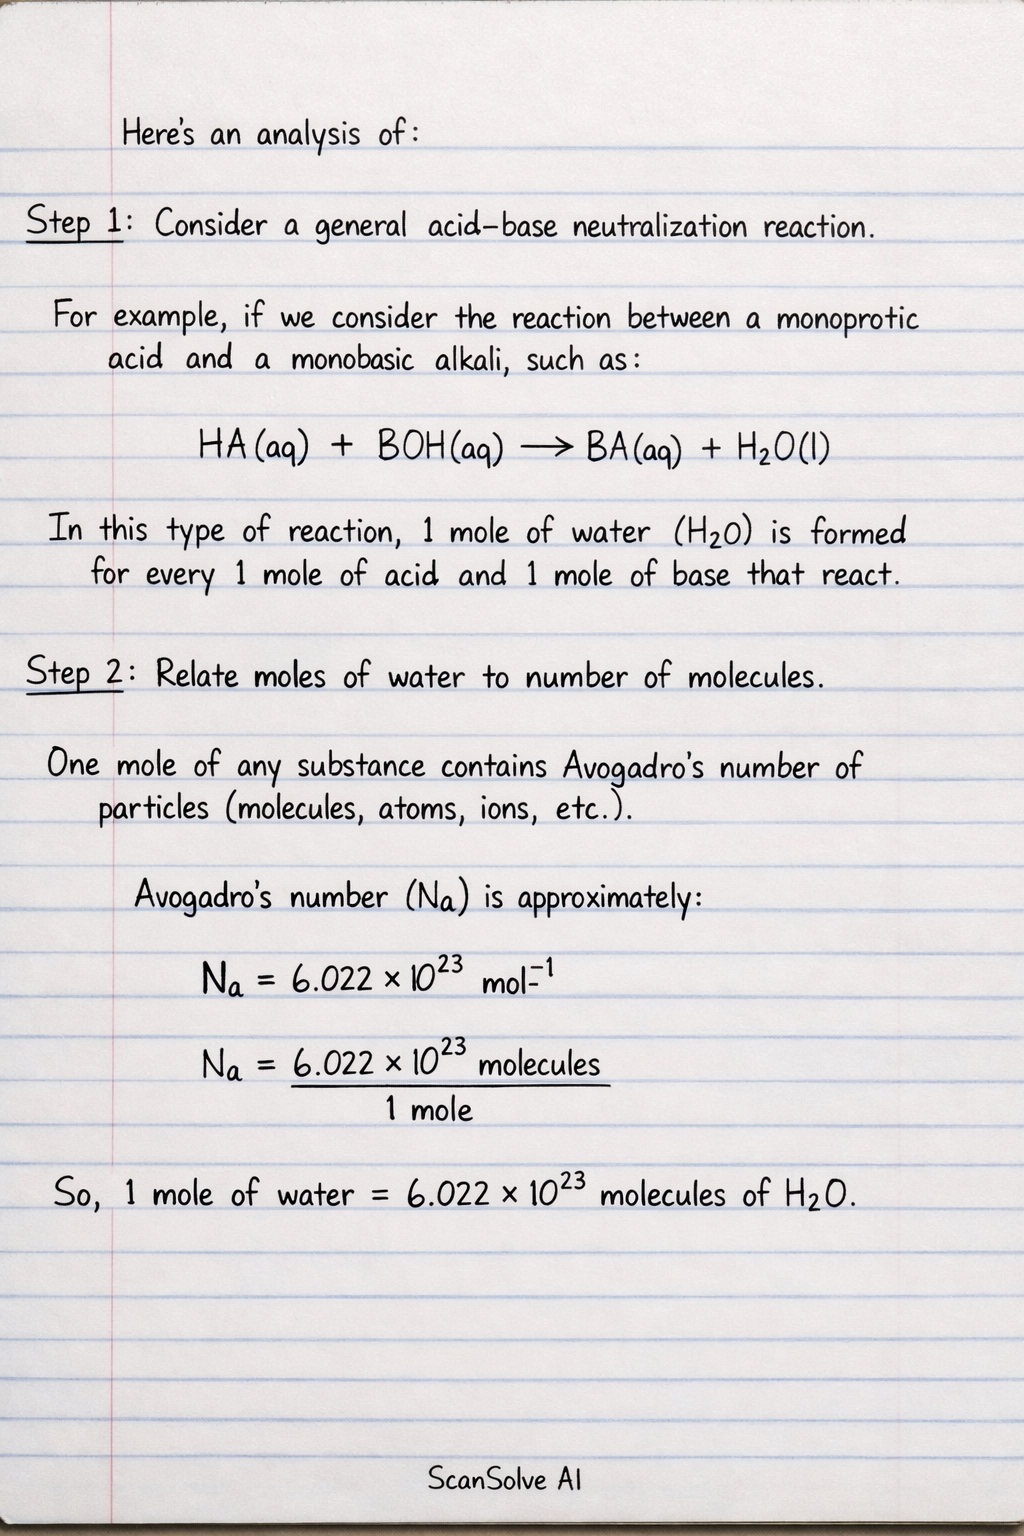 Here's an analysis of:
Step 1: Consider a general acid-base neutralization reaction.
For example, if we consider the reaction between a monoprotic
acid and a monobasic alkali, such as:
HA(aq) + BOH(aq) ⟶ BA(aq) + H₂O(l)
In this type of reaction, 1 mole of water (H₂O) is formed
for every 1 mole of acid and 1 mole of base that react.
Step 2: Relate moles of water to number of molecules.
One mole of any substance contains Avogadro's number of
particles (molecules, atoms, ions, etc.).
Avogadro's number (Na) is approximately:
Nₐ = 6.022 × 10²³ mol⁻¹
Nₐ = 6.022 × 10²³ molecules
1 mole
So, 1 mole of water = 6.022 × 10²³ molecules of H₂O.
ScanSolve AI